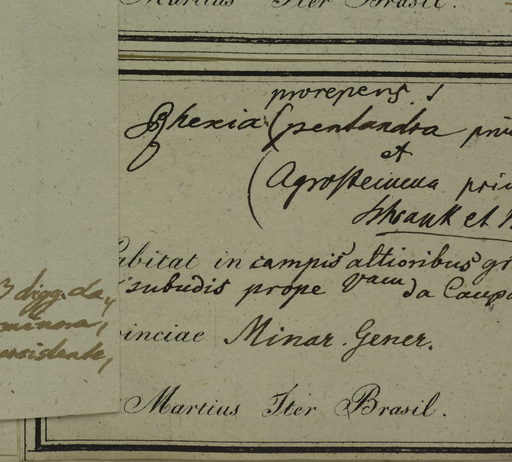 Martius Iter Brasil.
prorepens!
Rhexia (pentandra
et
(Agrostemma
Schrank et
habitat in campis altioribus gr
subudis prope Vam da Camp
vinciae Minar. Gener.
Martius Iter Brasil.
minora,
persistente,